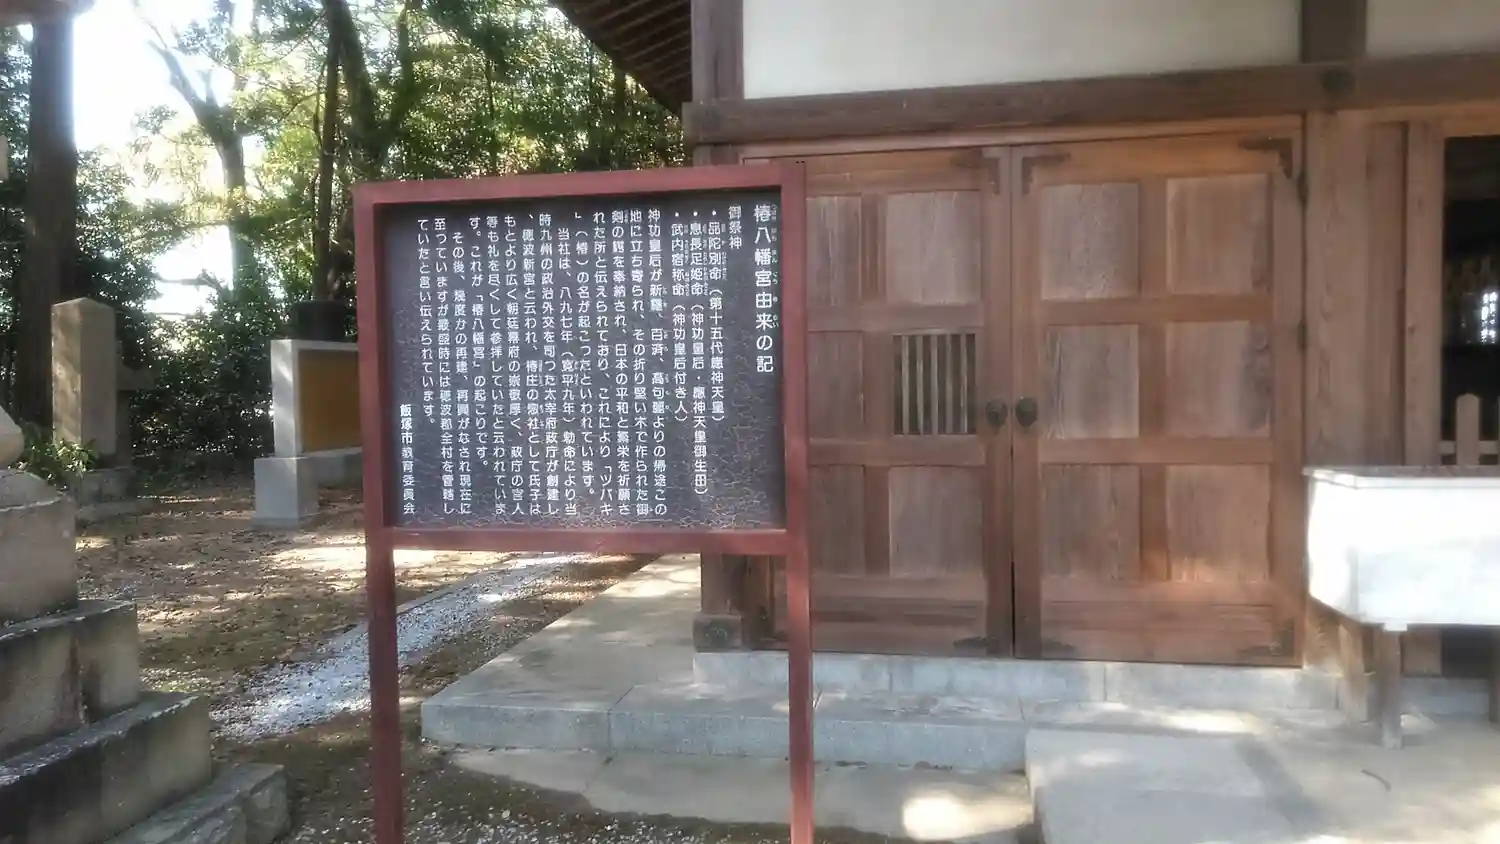 椿八幡宮由来の記
御祭神
・品陀別命(第十五代應神天皇)
・息長足姫命(神功皇后・應神天皇御生母)
・武内宿祢命(神功皇后付き人)
神功皇后が新羅、百済、高句麗よりの帰途この
地に立ち寄られ、その折り堅い木で作られた御
剣の鍔を奉納され、日本の平和と繁栄を祈願さ
れた所と伝えられており、これにより「ツバキ
」(椿)の名が起こつたといわれています。
当社は、八九七年(寛平九年)勅命により当
時九州の政治外交を司つた太宰府政庁が創建し
、穂波新宮と云われ、椿庄の惣社として氏子は
もとより広く朝廷幕府の崇敬厚く、政庁の宮人
等も礼を尽くして参拝していたと云われていま
す。これが「椿八幡宮」の起こりです。
その後、幾度かの再建、再興がなされ現在に
至つていますが最盛時には穂波郡全村を管轄し
ていたと言い伝えられています。
飯塚市教育委員会